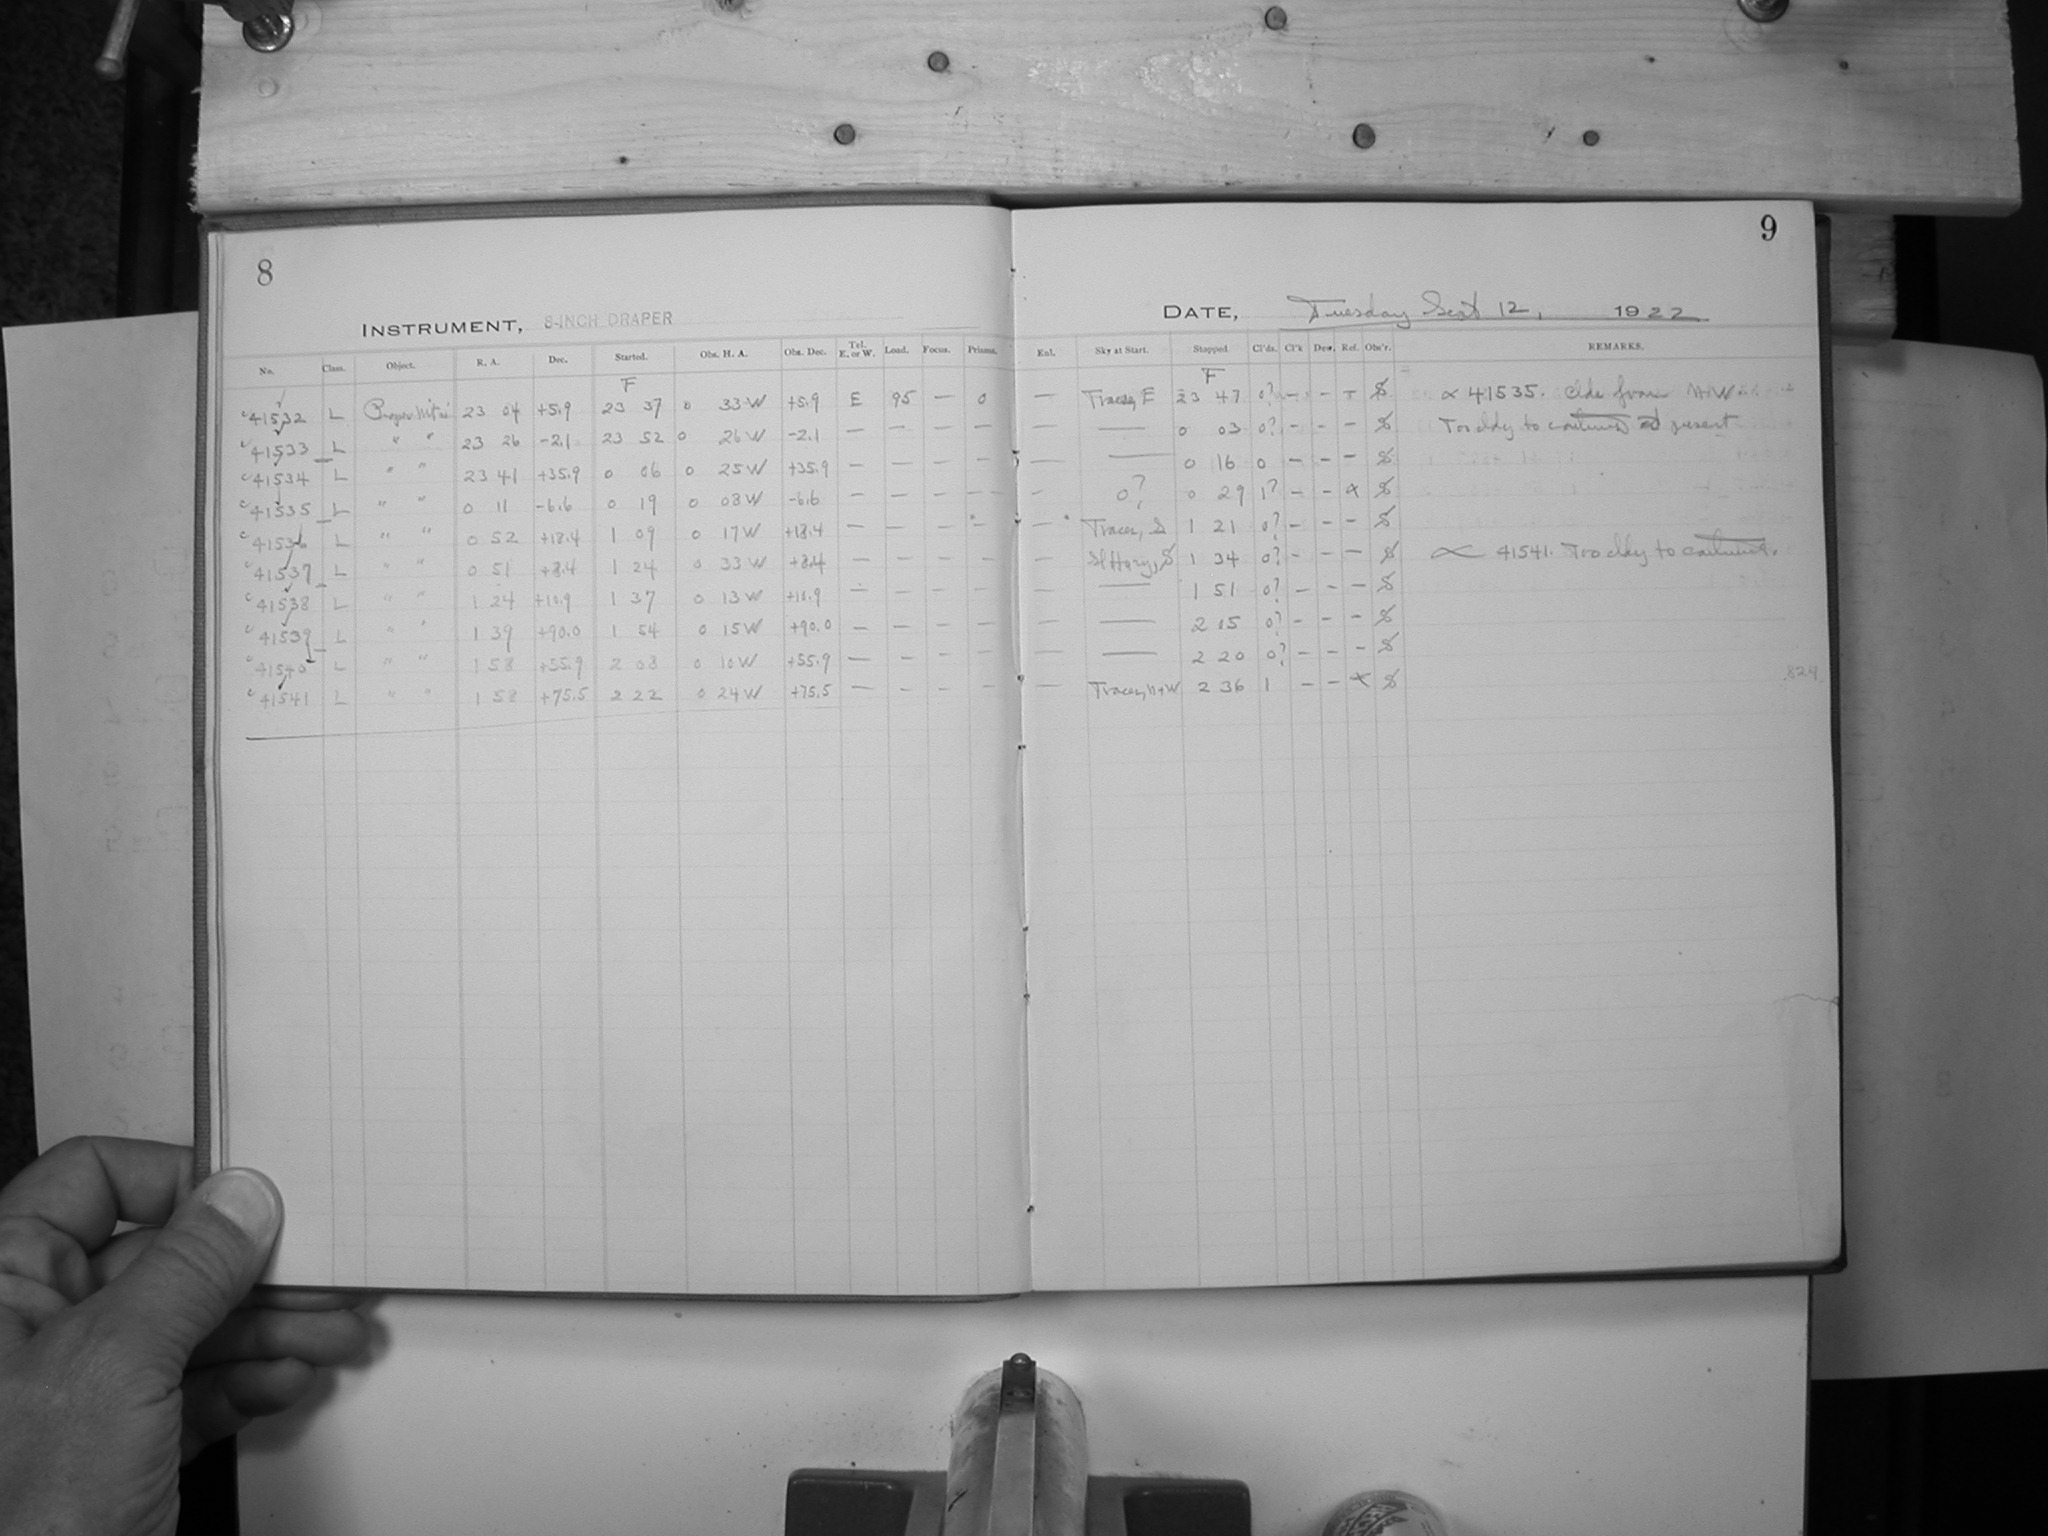 8
INSTRUMENT, 8-INCH DRAPER
No. Class. Object. R. A. Dec. Started. Obs. H. A. Obs. Dec. Tel. E. or W. Load. Focus. Prisms.
F
c 41532 L 23 04 +5.9 23 37 0 33 W +5.9 E 95 — 0
c 41533 L " " 23 26 -2.1 23 52 0 26 W -2.1 — — — —
c 41534 L " " 23 41 +35.9 0 06 0 25 W +35.9 — — — —
c 41535 L " " 0 11 -6.6 0 19 0 08 W -6.6 — — — —
c 41536 L " " 0 52 +18.4 1 09 0 17 W +18.4 — — — —
c 41537 L " " 0 51 +8.4 1 24 0 33 W +8.4 — — — —
c 41538 L " " 1 24 +10.9 1 37 0 13 W +10.9 — — — —
c 41539 L " " 1 39 +90.0 1 54 0 15 W +90.0 — — — —
c 41540 L " " 1 58 +55.9 2 08 0 10 W +55.9 — — — —
c 41541 L " " 1 58 +75.5 2 22 0 24 W +75.5 — — — —
9
DATE, Tuesday Sept 12, 1922
Enl. Sky at Start. Stopped Cl'ds. Cl'k Dew. Ref. Obs'r. REMARKS.
F
— Traces, E 23 47 0? — — — S ∝ 41535. Clds from N+W.
— — 0 03 0? — — — S Too cldy to continue at present
— — 0 16 0 — — — S
— 0? 0 29 1? — — ∝ S
— Traces, S 1 21 0? — — — S
— Sl Hazy, S 1 34 0? — — — S ∝ 41541. Too cldy to continue.
— — 1 51 0? — — — S
— — 2 05 0? — — — S
— — 2 20 0? — — — S
— Traces, N+W 2 36 1 — — ∝ S
824